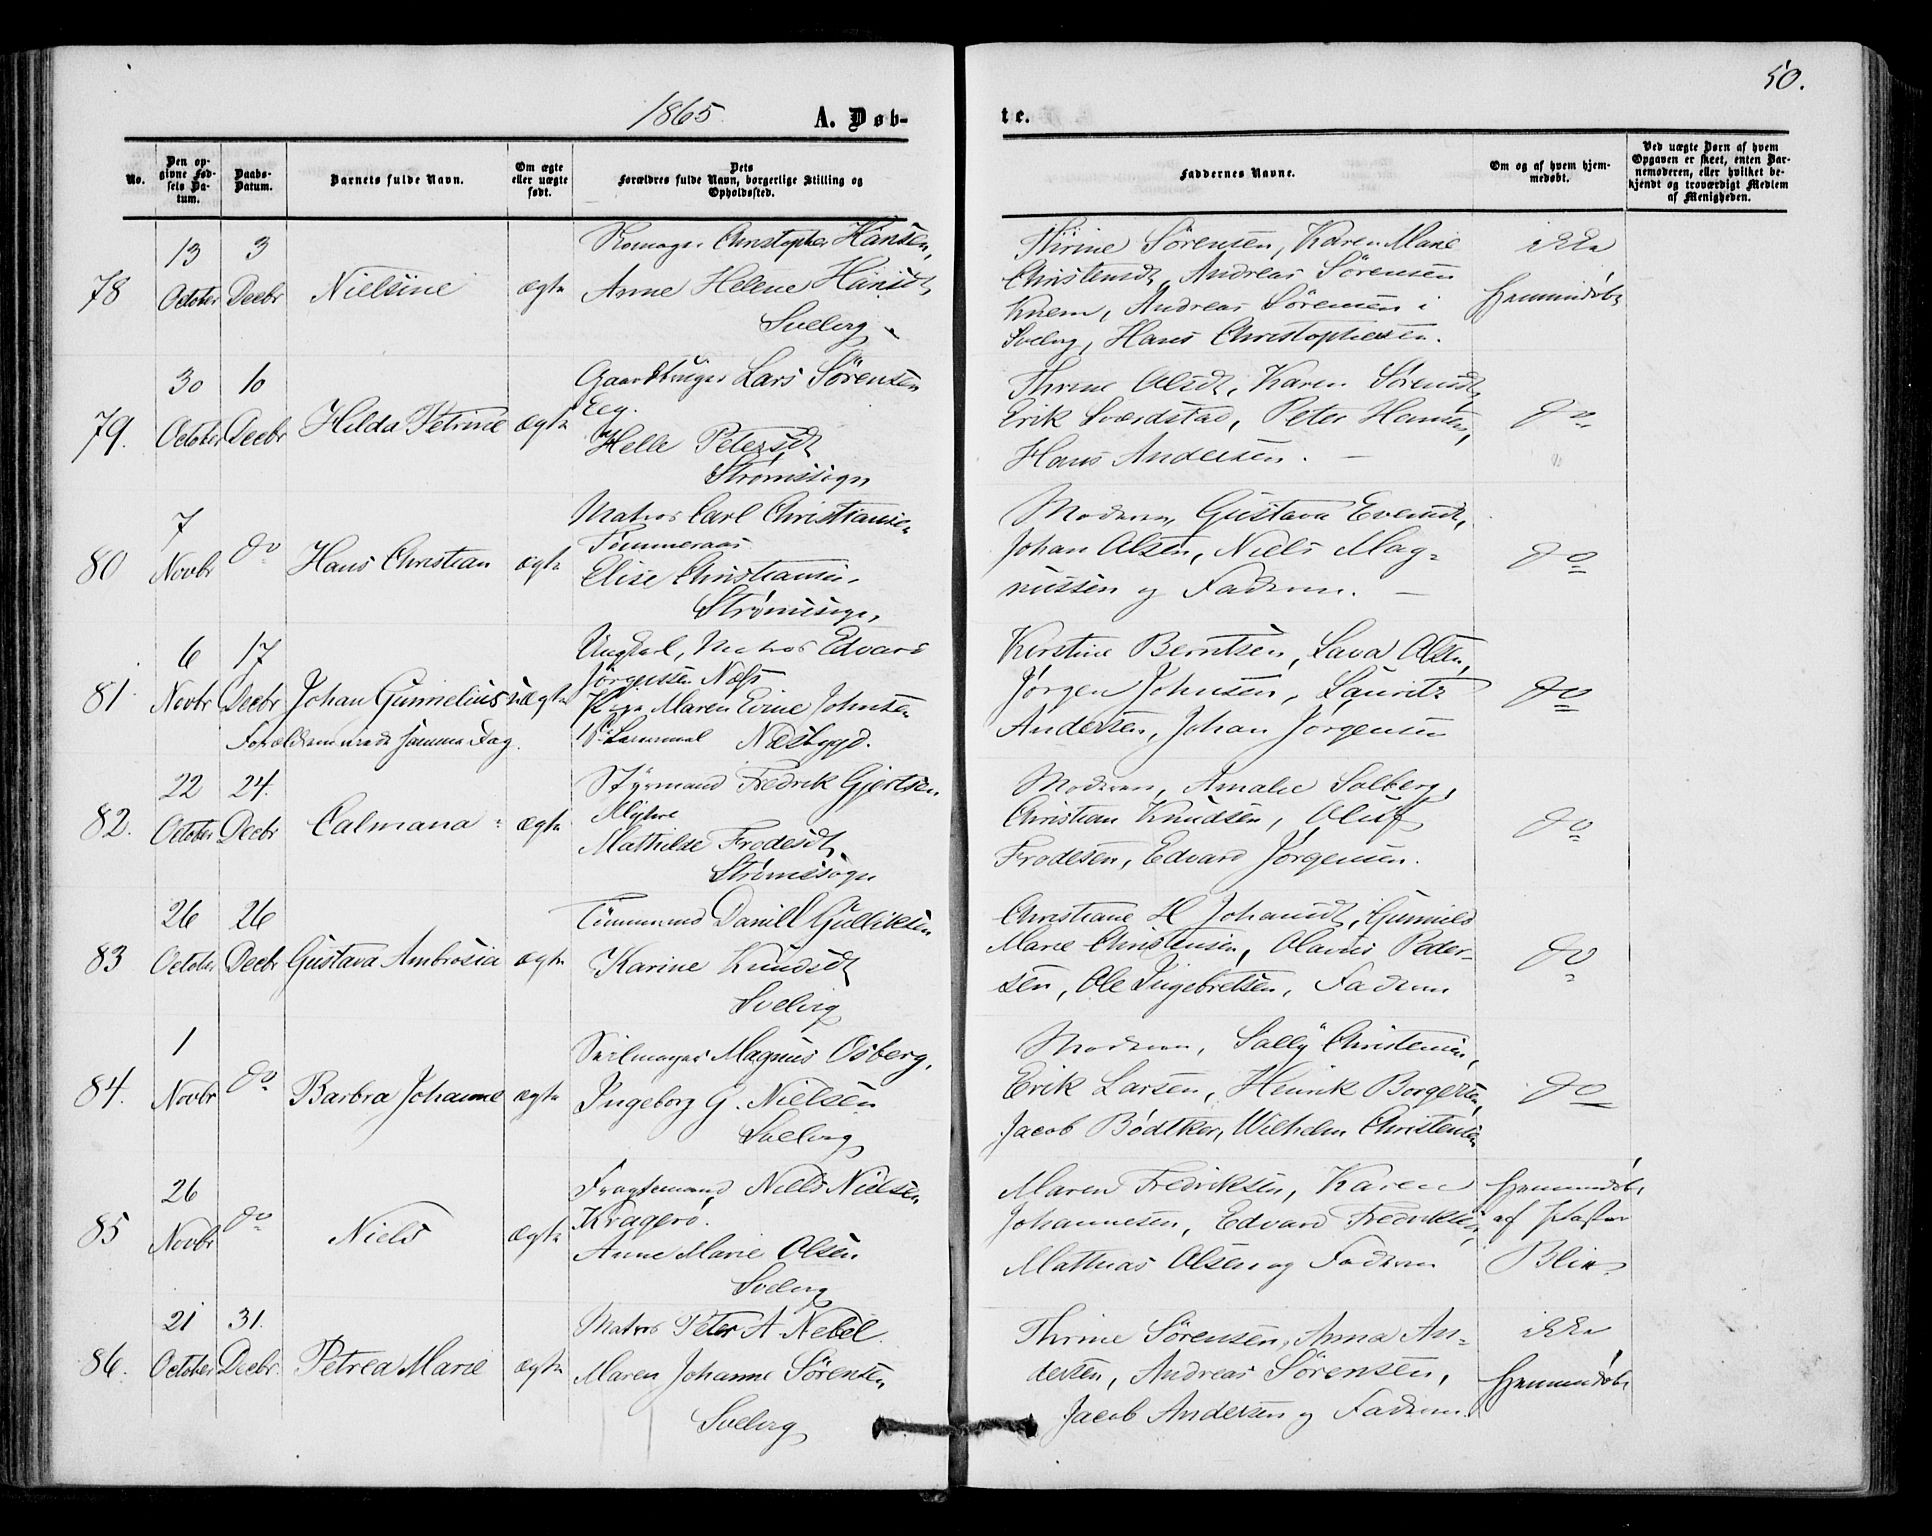 50.
1865. A. Døb- te.
No.
Den opgivne Fødsels Datum.
Daabs-Datum.
Barnets fulde Navn.
Om ægte eller uægte født.
Dets Forældres fulde Navn, borgerlige Stilling og Opholdssted.
Faddernes Navne.
Om og af hvem hjemmedøbt.
Ved uægte Børn af hvem Opgaven er skeet, enten Barnemoderen, eller hvilket bekjendt og troværdigt Medlem af Menigheden.
78 13 October 3 Decbr Nielsine ægte
Skomager Christopher Hansen,
Anne Helene Hansdt
Svelvig
Thrine Sørensen, Karen Marie
Christensdt, Andreas Sørensen
Knem, Andreas Sørensen i
Svelvig, Hans Christophersen.
ikke
hjemmedøbt
79. 30 October 10 Decbr Hilda Petrine ægte
Gaardbruger Lars Sörensen
Eeg.
Helle Petersdt
Strømssogn
Thrine Olsdt, Karen Sörensdt,
Erik Sværdstad, Peter Hansen,
Hans Andersen.
do
80 7 Novbr do Hans Christian ægte
Matros Carl Christiansen
Tømmeraas
Elise Christiansen,
Strømssogn,
Moderen, Gustava Evensdt,
Johan Olsen, Niels Mag-
nussen og Faderen.
do
81 6 Novbr 17 Decbr Johan Gunnelius uægte
Forældrene viede samme Dag.
Ungkarl, Matros Edvard
Jörgensen Næss
Pige Maren Evine Johnsen
Næsbygd.
Kerstine Berntsen, Lava Olsen,
Jørgen Johnsen, Lauritz
Andersen, Johan Jørgensen
do
82. 22 October 24. Decbr Calmana ægte
Styrmand Fredrik Gjertsen
Myhre
Mathilde Frodesdt
Strømssogn
Moderen, Amalie Solberg,
Christian Knudsen, Oluf
Frodesen, Edvard Jørgensen.
do
83 26 October 26 Decbr Gustava Ambrosia ægte
Tømmermand Daniel Gulliksen
Karine Knudsdt
Svelvig
Christiane H Johansdt, Gunnild
Marie Christensen, Olavus Peder-
sen, Ole Ingebretsen, Faderen
do
84. 1 Novbr do Barbra Johanne ægte
Seilmager Magnus Osberg,
Ingeborg G. Nielsen
Svelvig
Moderen, Sally Christensen,
Erik Larsen, Henrik Borgersen,
Jacob Bødtker, Wilhelm Christensen
do
85 26 Novbr do Niels ægte
Fragtemand Niels Nielsen
Kragerö.
Anne Marie Olsen
Svelvig
Maren Fredriksen, Karen
Johannesen, Edvard Fredriksen,
Mathias Olsen og Faderen
hjemmedøbt
af Pastor
Blix
86. 21 October 31. Decbr. Petrea Marie ægte
Matros Peter A. Nebel
Maren Johanne Sörensen
Svelvig
Thrine Sörensen, Anna An-
dersen, Andreas Sörensen,
Jacob Andersen og Faderen.
ikke
hjemmedøbt